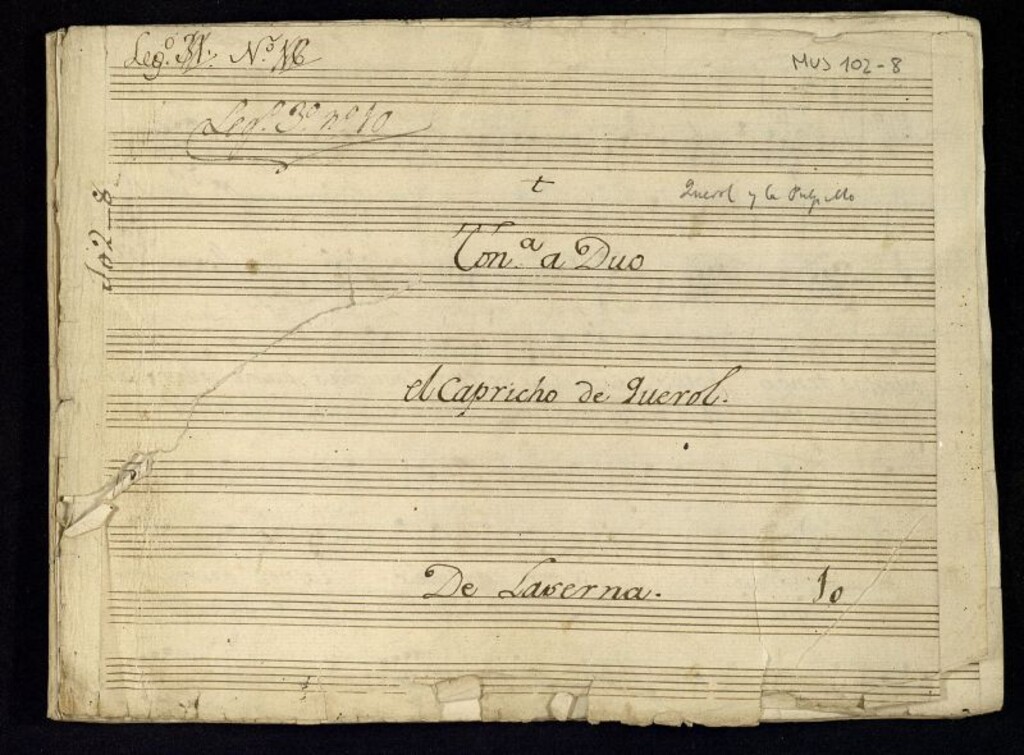 Leg.º 31. N.º 16
MUS 102-8
Leg.º 3º n.º 10
t
Querol y la Pulpillo
102-8
Ton.ª a Duo
el Capricho de Querol.
De Laserna.
10